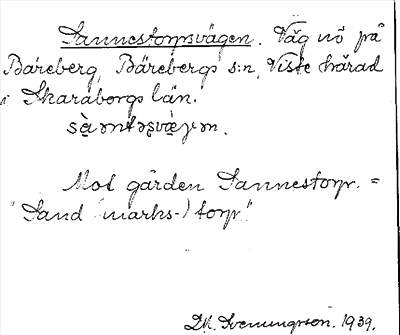 Sannestorpsvägen. Väg nö på
Bäreberg, Bärebergs s:n, Viste härad
i Skaraborgs län.
Mot gården Sannestorp. =
"Sand (marks-) torp."
1939.